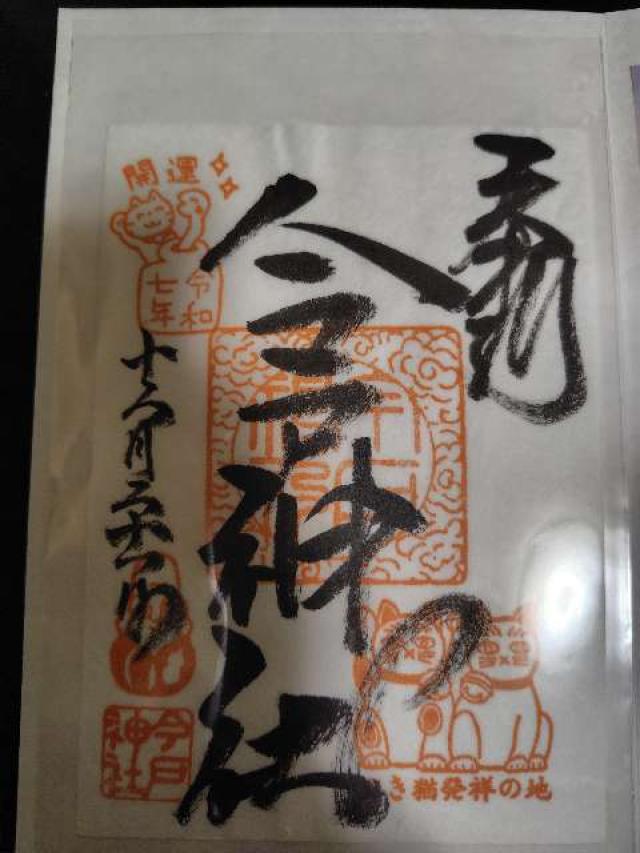 奉拝
今戸神社
開運
令和
七年
十二月二十一日
今戸
神社
招き猫発祥の地